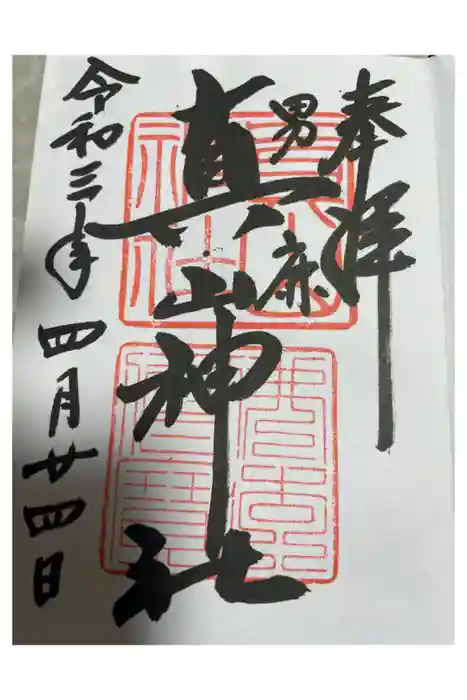 奉拝
男鹿
真山神社
令和三年四月廿四日